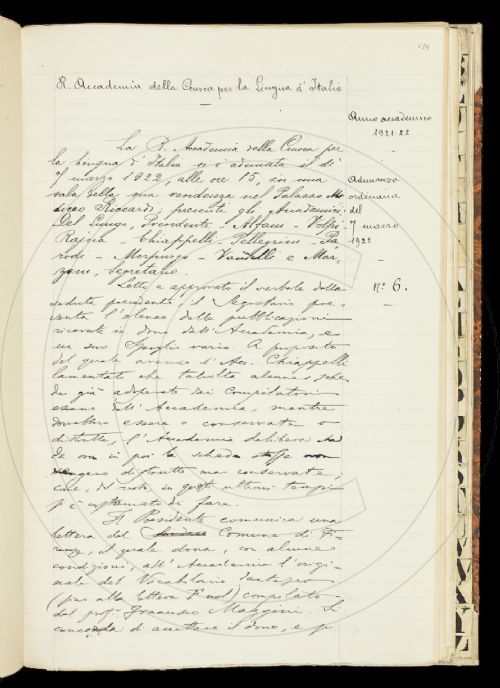 R. Accademia della Crusca per la Lingua d'Italia
Anno accademico
1921-22
La R. Accademia della Crusca per
la Lingua d'Italia si è adunata il dì
7 marzo 1922, alle ore 15, in una
sala della sua residenza nel Palazzo Me-
diceo Riccardi, presenti gli Accademici
Del Lungo, Presidente - Alfani - Volpi
Rajna - Chiappelli - Pellegrini - Pa-
rodi - Morpurgo - Vandelli e Maz-
zoni, Segretario.
Adunanza
ordinaria
del
7 marzo
1922
n.° 6.
Letto e approvato il verbale della
seduta precedente, il Segretario pre-
senta l'elenco delle pubblicazioni
ricevute in dono dall'Accademia, e
un suo spoglio vario. A proposito
del quale avendo l'Acc. Chiappelli
lamentato che talvolta alcune sche-
de già adoperate dai Compilatori
escano dall'Accademia, mentre
dovrebbero essere o conservate o
distrutte, l'Accademia delibera che
da ora in poi le schede non
vengano distrutte ma conservate,
come, del resto, in questi ultimi tempi
si è usato di fare.
Il Presidente comunica una
lettera del Comune di Fi-
renze, il quale dona, con alcune
condizioni, all'Accademia l'origi-
nale del Vocabolario
(fino alla lettera F) compilato
dal prof. Francesco Maggini. Si
concorda di accettare il dono, e si